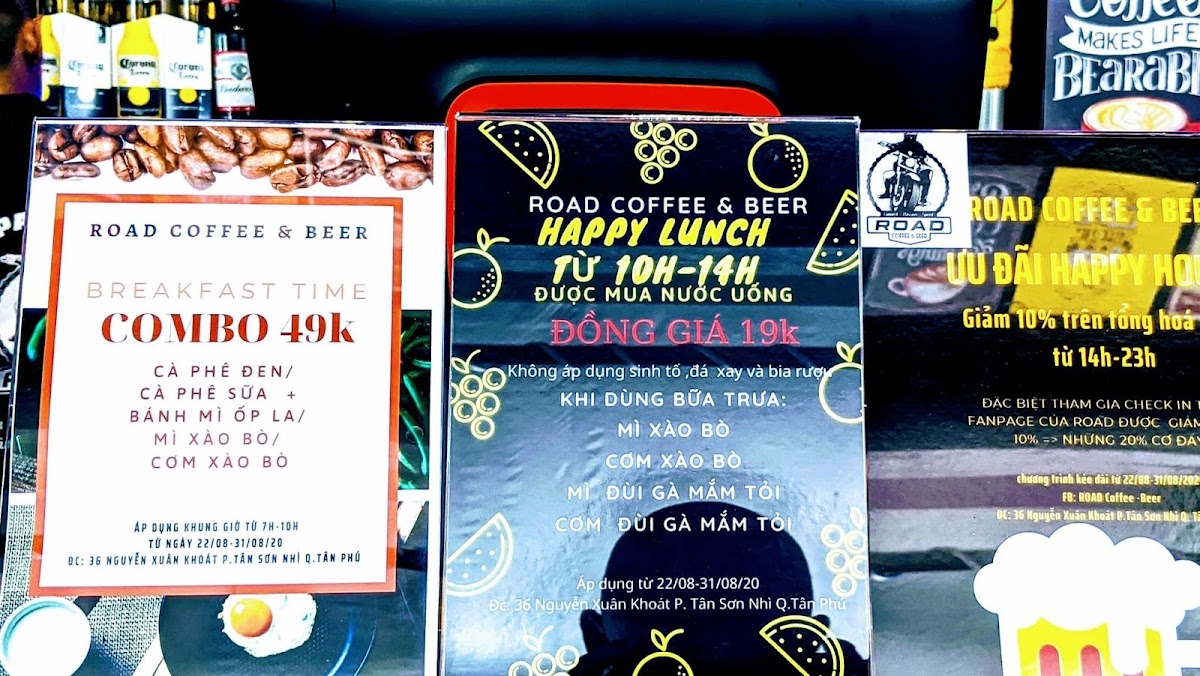 Corona
Extra
Corona
Extra
Coffee
MAKES LIFE
BEARABL
ROAD COFFEE & BEER
BREAKFAST TIME
COMBO 49k
CÀ PHÊ ĐEN/
CÀ PHÊ SỮA +
BÁNH MÌ ỐP LA/
MÌ XÀO BÒ/
CƠM XÀO BÒ
ÁP DỤNG KHUNG GIỜ TỪ 7H-10H
TỪ NGÀY 22/08-31/08/20
ĐC: 36 NGUYỄN XUÂN KHOÁT P.TÂN SƠN NHÌ Q.TÂN PHÚ
ROAD COFFEE & BEER
HAPPY LUNCH
TỪ 10H-14H
ĐƯỢC MUA NƯỚC UỐNG
ĐỒNG GIÁ 19k
Không áp dụng sinh tố ,đá xay và bia rượu
KHI DÙNG BỮA TRƯA:
MÌ XÀO BÒ
CƠM XÀO BÒ
MÌ ĐÙI GÀ MẮM TỎI
CƠM ĐÙI GÀ MẮM TỎI
Áp dụng từ 22/08-31/08/20
Đc: 36 Nguyễn Xuân Khoát P. Tân Sơn Nhì Q.Tân Phú
ROAD
COFFEE & BEER
ROAD COFFEE & BEE
ƯU ĐÃI HAPPY HO
Giảm 10% trên tổng hoá
từ 14h-23h
ĐẶC BIỆT THAM GIA CHECK IN T
FANPAGE CỦA ROAD ĐƯỢC GIẢM
10% => NHỮNG 20% CƠ ĐẤY
chương trình kéo dài từ 22/08-31/08/202
FB: ROAD Coffee -Beer
ĐC: 36 Nguyễn Xuân Khoát P.Tân Sơn Nhì Q. Tâ